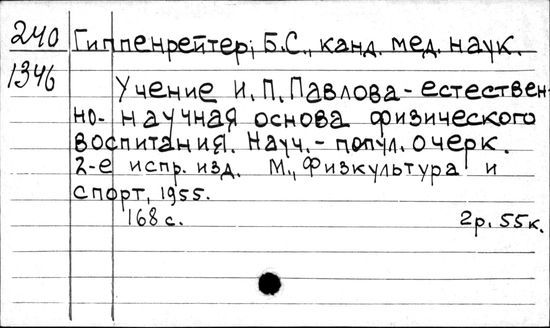 240 Гиппенрейтер, Б.С., канд. мед. наук.
1346
Учение И.П.Павлова - естествен-
но-научная основа физического
воспитания. Науч.- попул. очерк.
2-е испр. изд. М., "Физкультура и
спорт", 1955.
168 с. 2р. 55к.